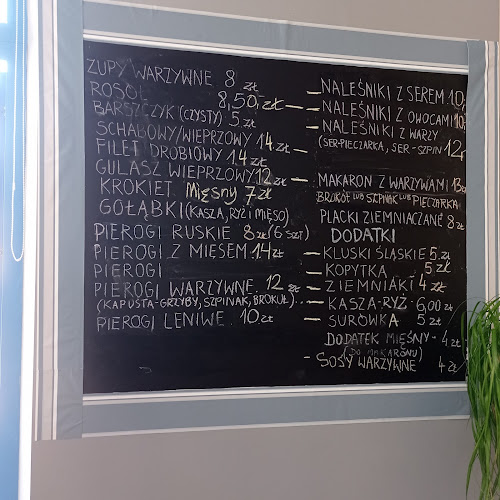 ZUPY WARZYWNE 8 zł
ROSÓŁ 8,50 zł
BARSZCZYK (CZYSTY) 5 zł
SCHABOWY/WIEPRZOWY 14 zł
FILET DROBIOWY 14 zł
GULASZ WIEPRZOWY 12 zł
KROKIET Mięsny 7 zł
GOŁĄBKI (KASZA, RYŻ I MIĘSO)
PIEROGI RUSKIE 8 zł (6 SZT)
PIEROGI Z MIĘSEM 14 zł
PIEROGI
PIEROGI WARZYWNE 12 zł
(KAPUSTA-GRZYBY, SZPINAK, BROKUŁ)
PIEROGI LENIWE 10 zł
NALEŚNIKI Z SEREM 10
NALEŚNIKI Z OWOCAMI 10
NALEŚNIKI Z WARZY
(SER-PIECZARKA, SER-SZPIN 12
MAKARON Z WARZYWAMI 13
BROKÓŁ LUB SZPINAK LUB PIECZARKA
PLACKI ZIEMNIACZANE 8 zł
DODATKI
KLUSKI ŚLĄSKIE 5 zł
KOPYTKA 5 zł
ZIEMNIAKI 4 zł
KASZA-RYŻ 6,00 zł
SURÓWKA 5 zł
DODATEK MIĘSNY - 4 zł
(DO MAKARONU)
SOSY WARZYWNE 4 zł